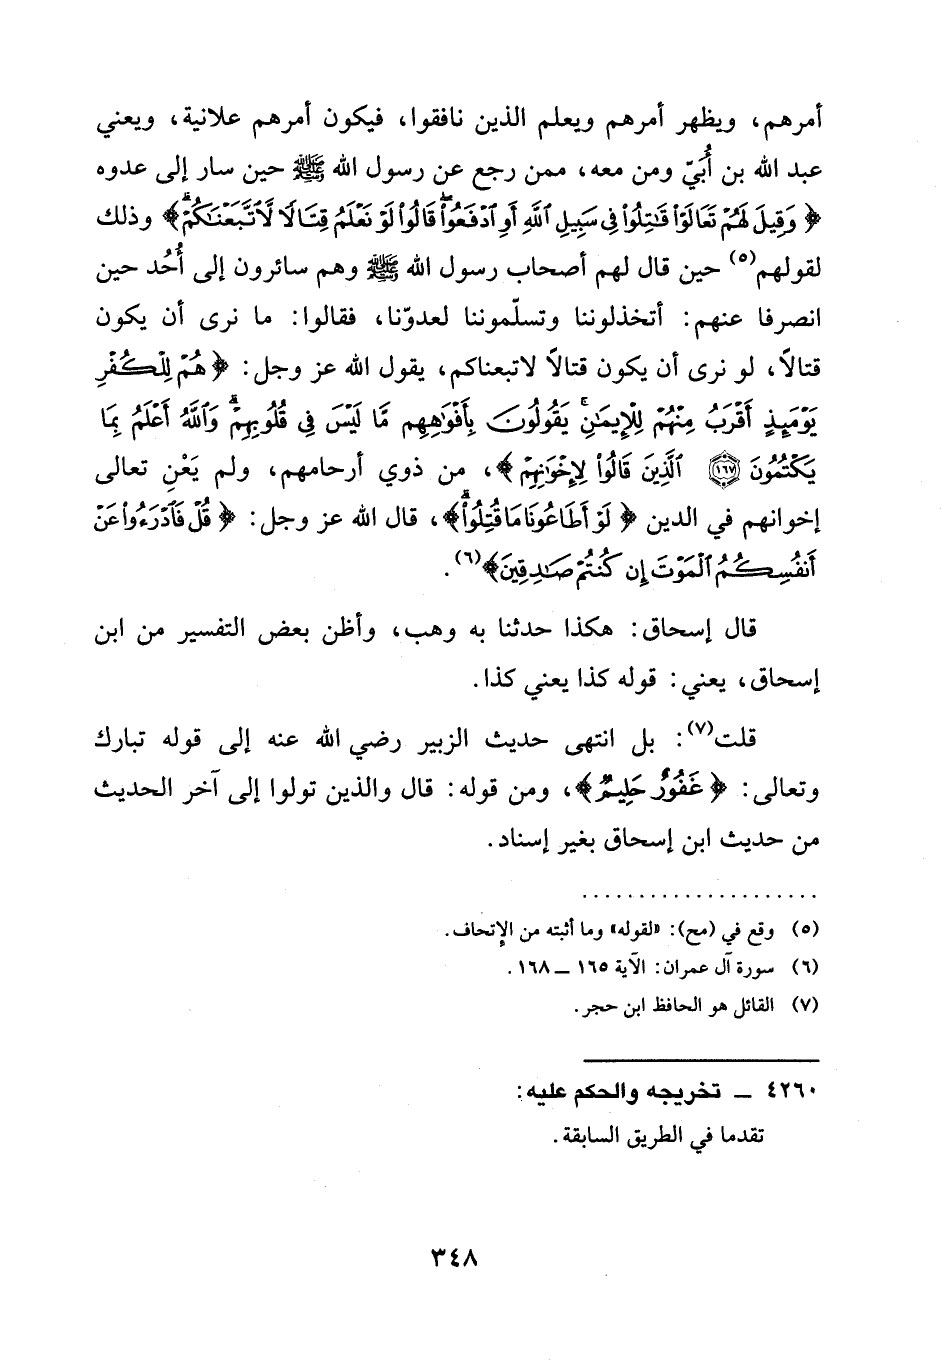 أمرهم، ويظهر أمرهم ويعلم الذين نافقوا، فيكون أمرهم علانية، ويعني
عبد الله بن أُبَيّ ومن معه، ممن رجع عن رسول الله ﷺ حين سار إلى عدوه
﴿ وَقِيلَ لَهُمْ تَعَالَوْا۟ قَٰتِلُوا۟ فِى سَبِيلِ ٱللَّهِ أَوِ ٱدْفَعُوا۟ۖ قَالُوا۟ لَوْ نَعْلَمُ قِتَالًا لَّٱتَّبَعْنَٰكُمْۗ ﴾ وذلك
لقولهم(٥) حين قال لهم أصحاب رسول الله ﷺ وهم سائرون إلى أُحُد حين
انصرفا عنهم: أتخذلوننا وتسلّموننا لعدوّنا، فقالوا: ما نرى أن يكون
قتالاً، لو نرى أن يكون قتالاً لاتبعناكم، يقول الله عز وجل: ﴿ هُمْ لِلْكُفْرِ
يَوْمَئِذٍ أَقْرَبُ مِنْهُمْ لِلْإِيمَٰنِۚ يَقُولُونَ بِأَفْوَٰهِهِم مَّا لَيْسَ فِى قُلُوبِهِمْۗ وَٱللَّهُ أَعْلَمُ بِمَا
يَكْتُمُونَ ﴿١٦٧﴾ ٱلَّذِينَ قَالُوا۟ لِإِخْوَٰنِهِمْ ﴾، من ذوي أرحامهم، ولم يَعْنِ تعالى
إخوانهم في الدين ﴿ لَوْ أَطَاعُونَا مَا قُتِلُوا۟ۗ ﴾، قال الله عز وجل: ﴿ قُلْ فَٱدْرَءُوا۟ عَنْ
أَنفُسِكُمُ ٱلْمَوْتَ إِن كُنتُمْ صَٰدِقِينَ ﴾(٦).
قال إسحاق: هكذا حدثنا به وهب، وأظن بعض التفسير من ابن
إسحاق، يعني: قوله كذا يعني كذا.
قلت(٧): بل انتهى حديث الزبير رضي الله عنه إلى قوله تبارك
وتعالى: ﴿ غَفُورٌ حَلِيمٌ ﴾، ومن قوله: قال والذين تولوا إلى آخر الحديث
من حديث ابن إسحاق بغير إسناد.
(٥) وقع في (مح): «لقوله» وما أثبته من الإتحاف.
(٦) سورة آل عمران: الآية ١٦٥ – ١٦٨.
(٧) القائل هو الحافظ ابن حجر.
٤٢٦٠ – تخريجه والحكم عليه:
تقدما في الطريق السابقة.
٣٤٨